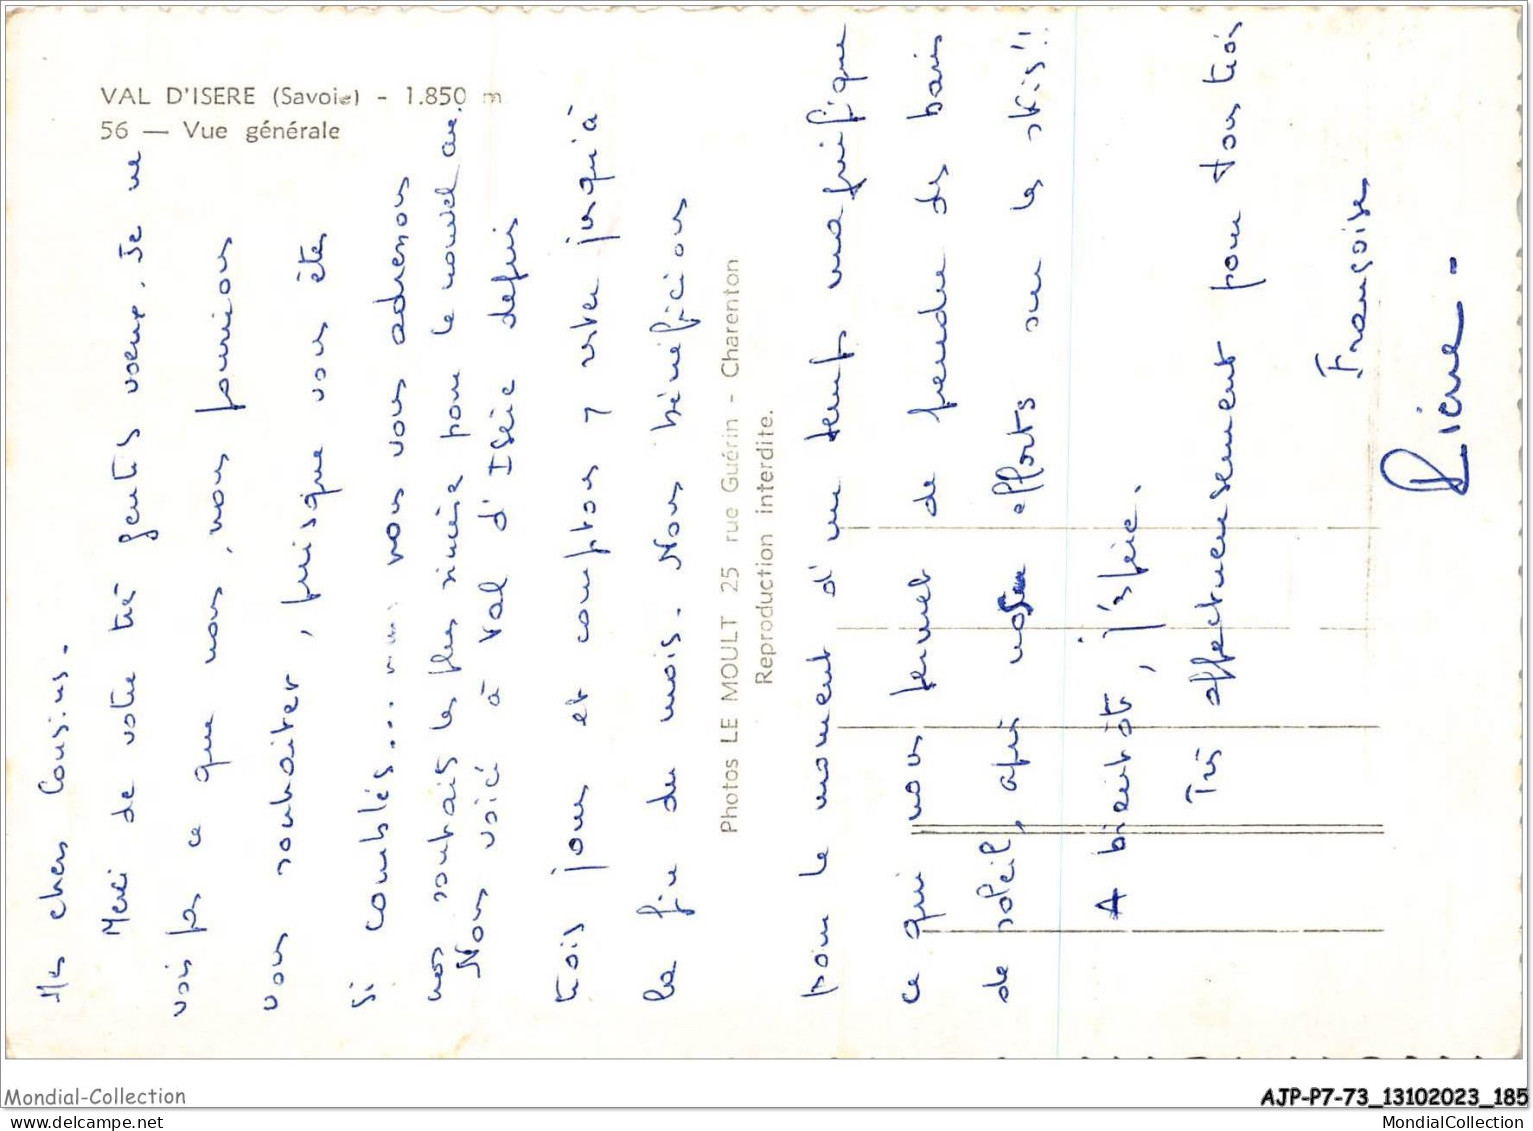 VAL D'ISERE (Savoie) - 1.850 m
56 — Vue générale
Mes chers Cousins.
Merci de votre très gentils voeux. Je ne
vois pas ce que nous, nous pourrions
vous souhaiter, puisque vous êtes
si comblés... nous vous adressons
nos souhaits les plus sincères pour le nouvel an.
Nous voici à Val d'Isère depuis
trois jours et comptons y rester jusqu'à
la fin du mois. Nous bénéficions
Photos LE MOULT 25 rue Guérin - Charenton
Reproduction interdite.
pour le moment d'un temps magnifique
ce qui nous permet de prendre des bains
de soleil, après nos efforts sur les skis!!
A bientôt, j'espère.
Très affectueusement pour tous trois
Françoise
Pierre -
Mondial-Collection
AJP-P7-73_13102023_185
www.delcampe.net
MondialCollection